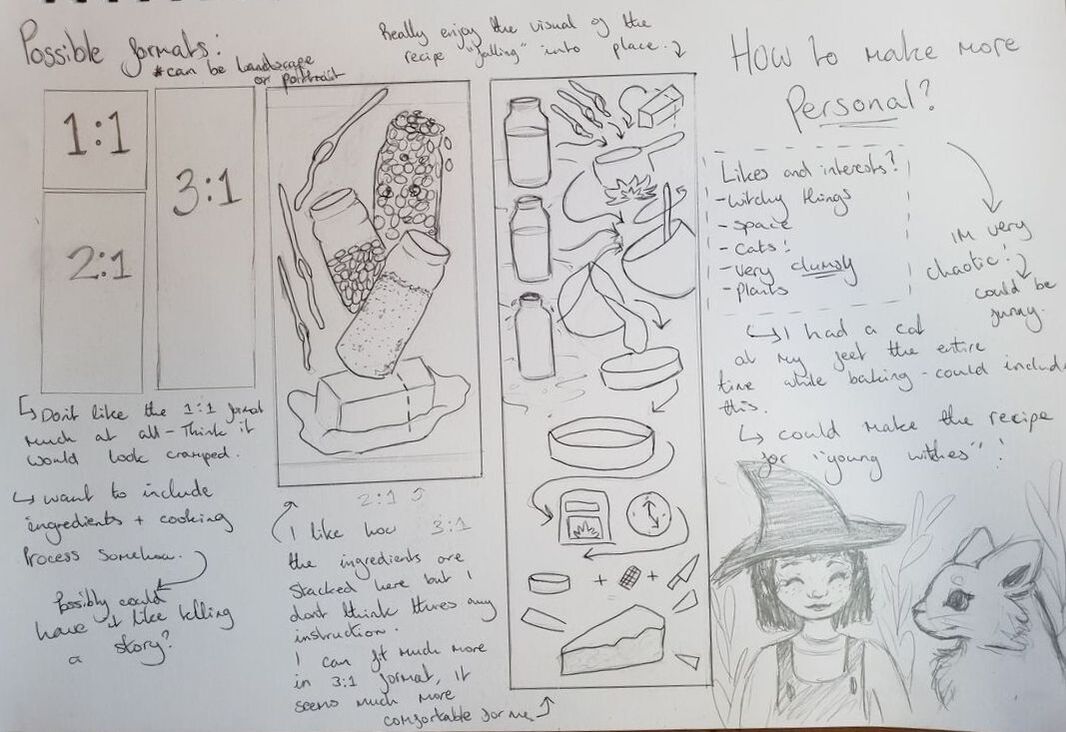 Possible formats:
*can be landscape
or portrait
1:1
2:1
3:1
↳ Dont like the 1:1 format
much at all - Think it
would look cramped.
↳ want to include
ingredients + cooking
Process somehow.
Possibly could
have it like telling
a story?
Really enjoy the visual of the
recipe "falling" into place.
2:1
3:1
I like how
the ingredients are
stacked here but I
dont think theres any
instruction.
I can fit much more
in 3:1 format, it
seems much more
comfortable for me
+ +
How to make more
Personal?
Likes and interests?
- witchy things
- space
- cats!
- very clumsy
- plants
IM very
chaotic!
could be
funny.
↳ I had a cat
at my feet the entire
time while baking - could include
this.
↳ could make the recipe
for "young witches"!